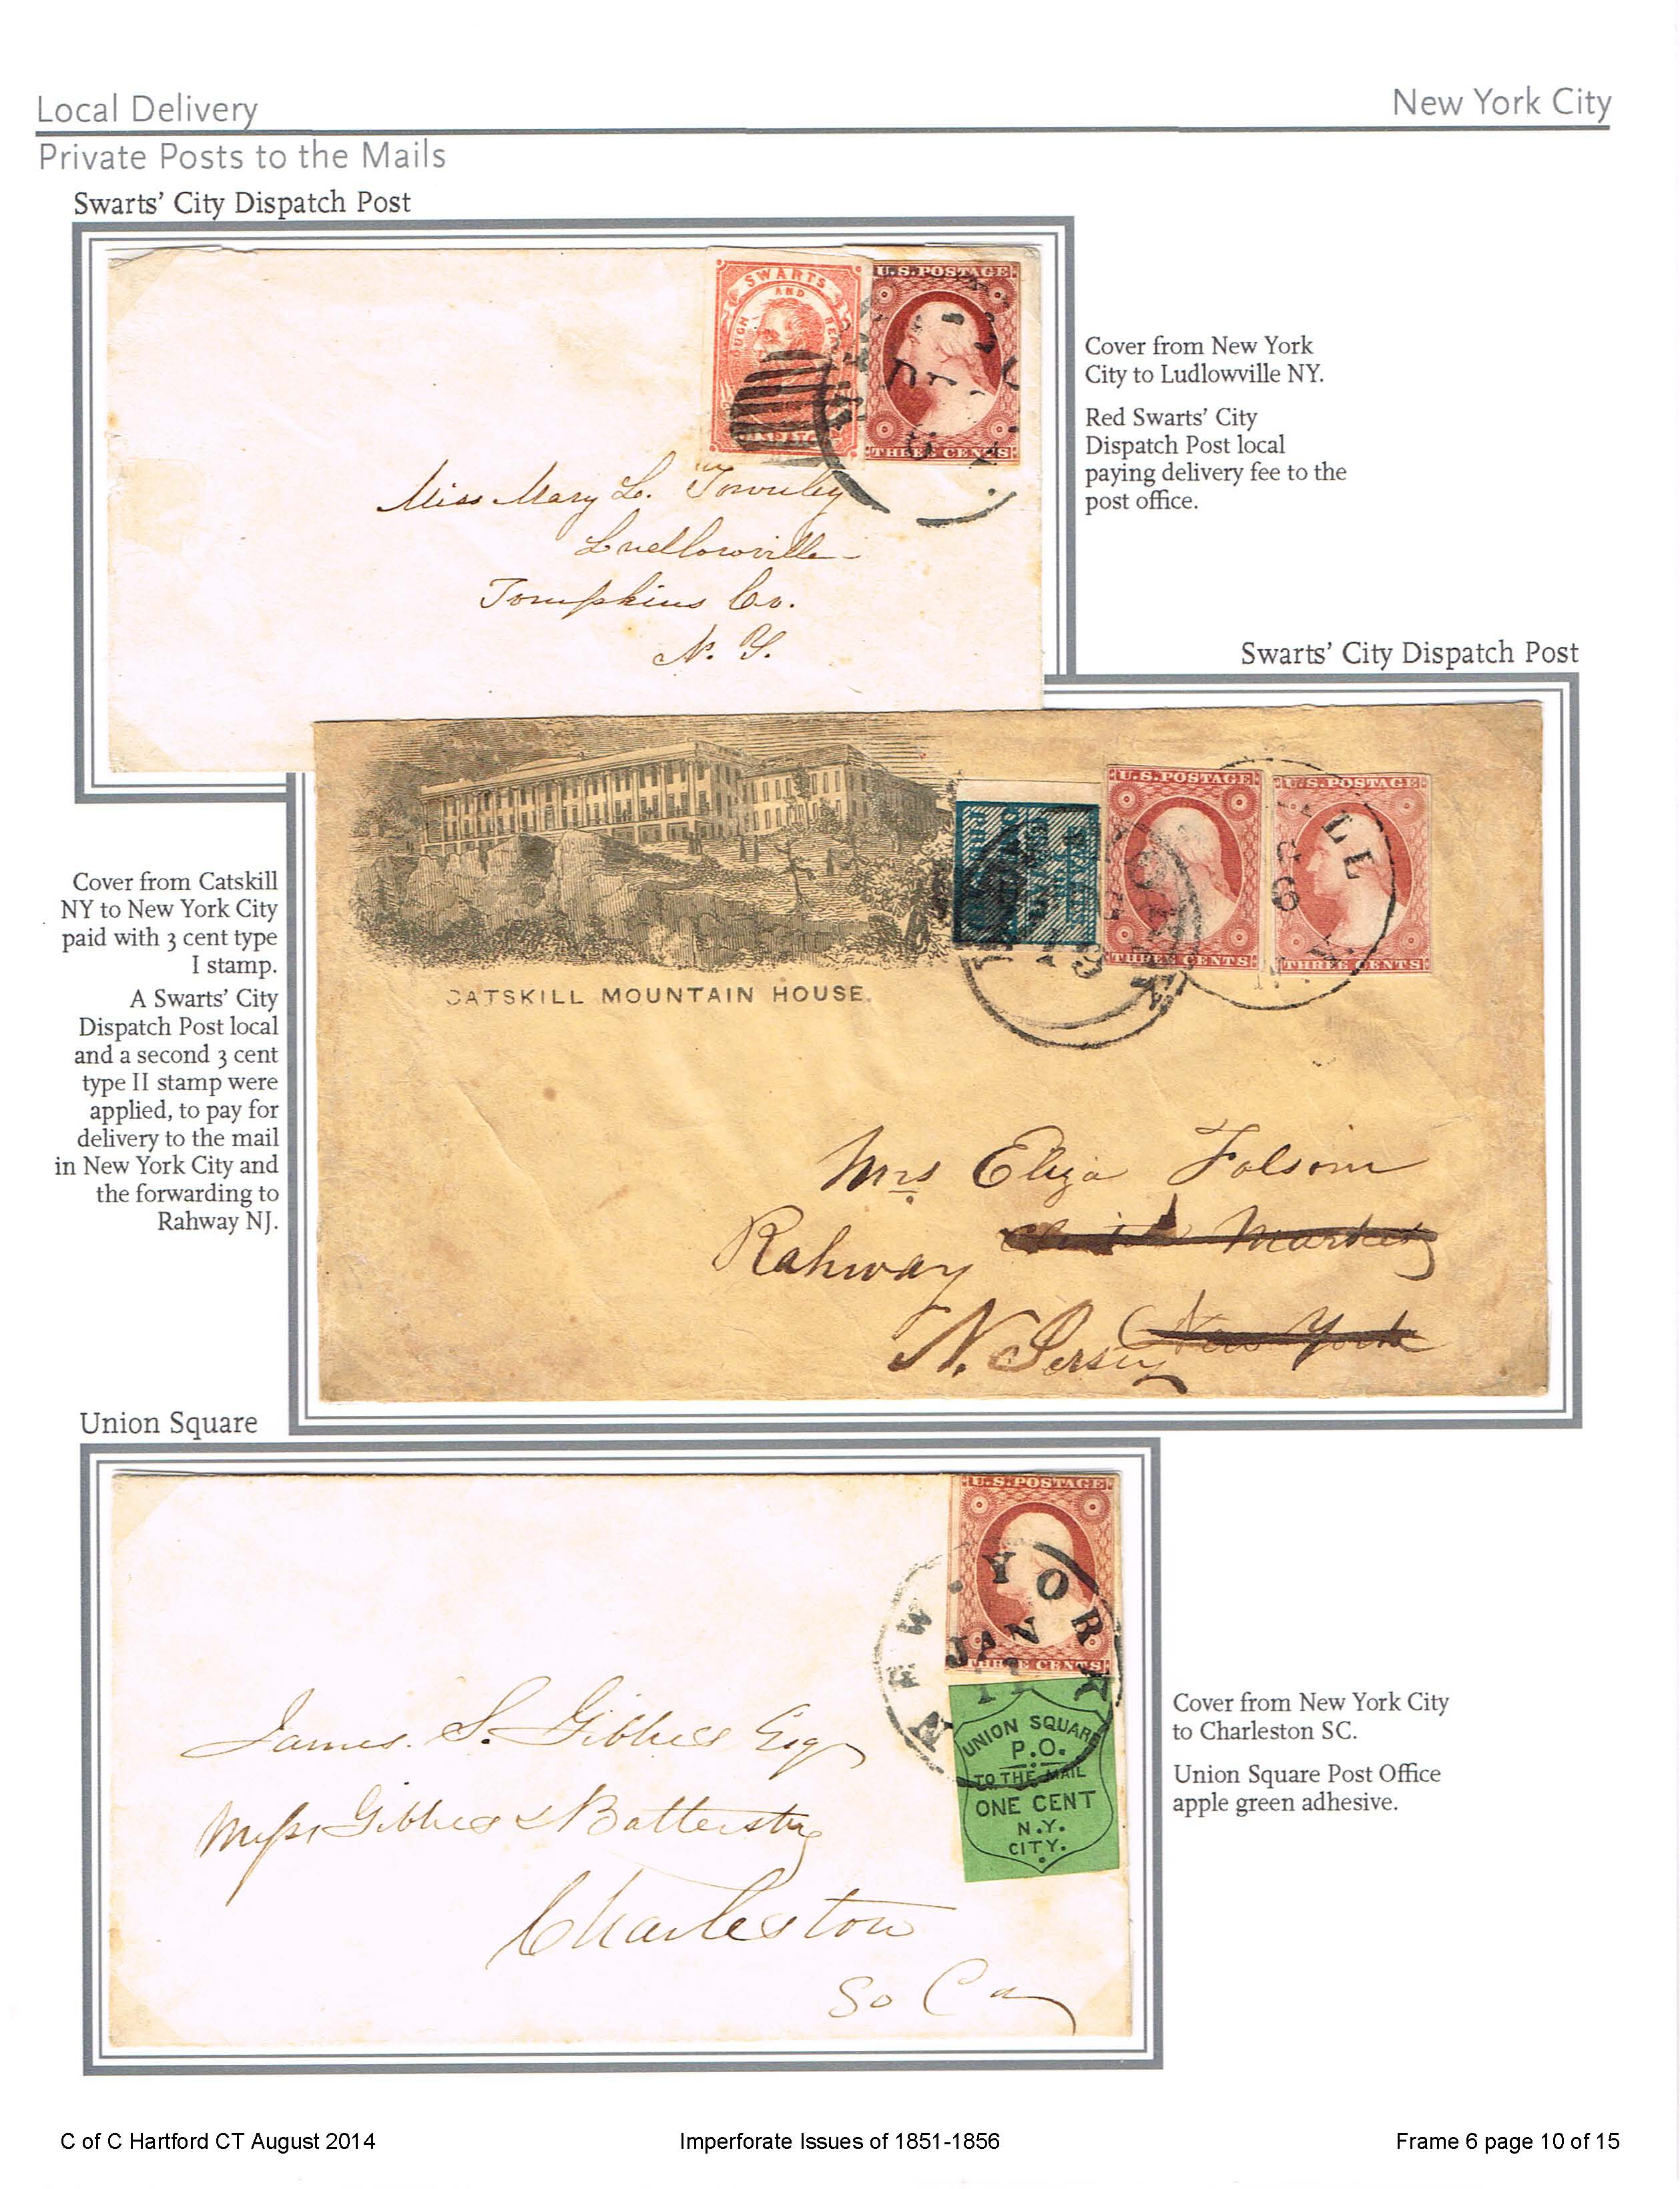 Local Delivery
New York City
Private Posts to the Mails
Swarts' City Dispatch Post
SWARTS
AND
U.S.POSTAGE
THREE CENTS
Miss Mary L. Townley
Ludlowville
Tompkins Co.
N. Y.
Cover from New York
City to Ludlowville NY.
Red Swarts' City
Dispatch Post local
paying delivery fee to the
post office.
Swarts' City Dispatch Post
CATSKILL MOUNTAIN HOUSE.
U.S.POSTAGE
THREE CENTS
U.S.POSTAGE
THREE CENTS
Mrs Eliza Folsom
Rahway
N. Jersey
New York
Cover from Catskill
NY to New York City
paid with 3 cent type
I stamp.
A Swarts' City
Dispatch Post local
and a second 3 cent
type II stamp were
applied, to pay for
delivery to the mail
in New York City and
the forwarding to
Rahway NJ.
Union Square
U.S.POSTAGE
THREE CENTS
NEW YORK
JAN
UNION SQUARE
P.O.
TO THE MAIL
ONE CENT
N.Y.
CITY.
James. S. Gibbes Esq
Messrs Gibbes & Battersby
Charleston
So Ca
Cover from New York City
to Charleston SC.
Union Square Post Office
apple green adhesive.
C of C Hartford CT August 2014
Imperforate Issues of 1851-1856
Frame 6 page 10 of 15